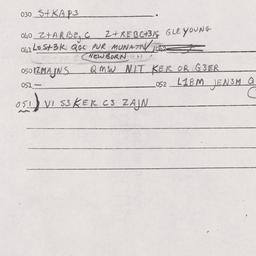 030 S+KAP3
040 Z+ARBE, C Z+REBC+3K GLE YOUNG
041 LOS+BK QOC PUR MUNA
NEWBORN
050 1ZMAJNS QMW NIT KER OR G3ER
052 — 052 L1BM JEN3M Q
051) V1 S3 KER C3 ZAJN